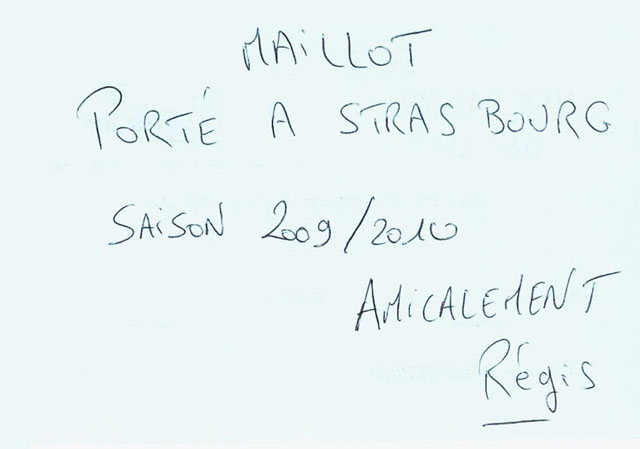 MAiLLOT
PORTÉ A STRASBOURG
SAiSON 2009/2010
AMiCALEMENT
Régis